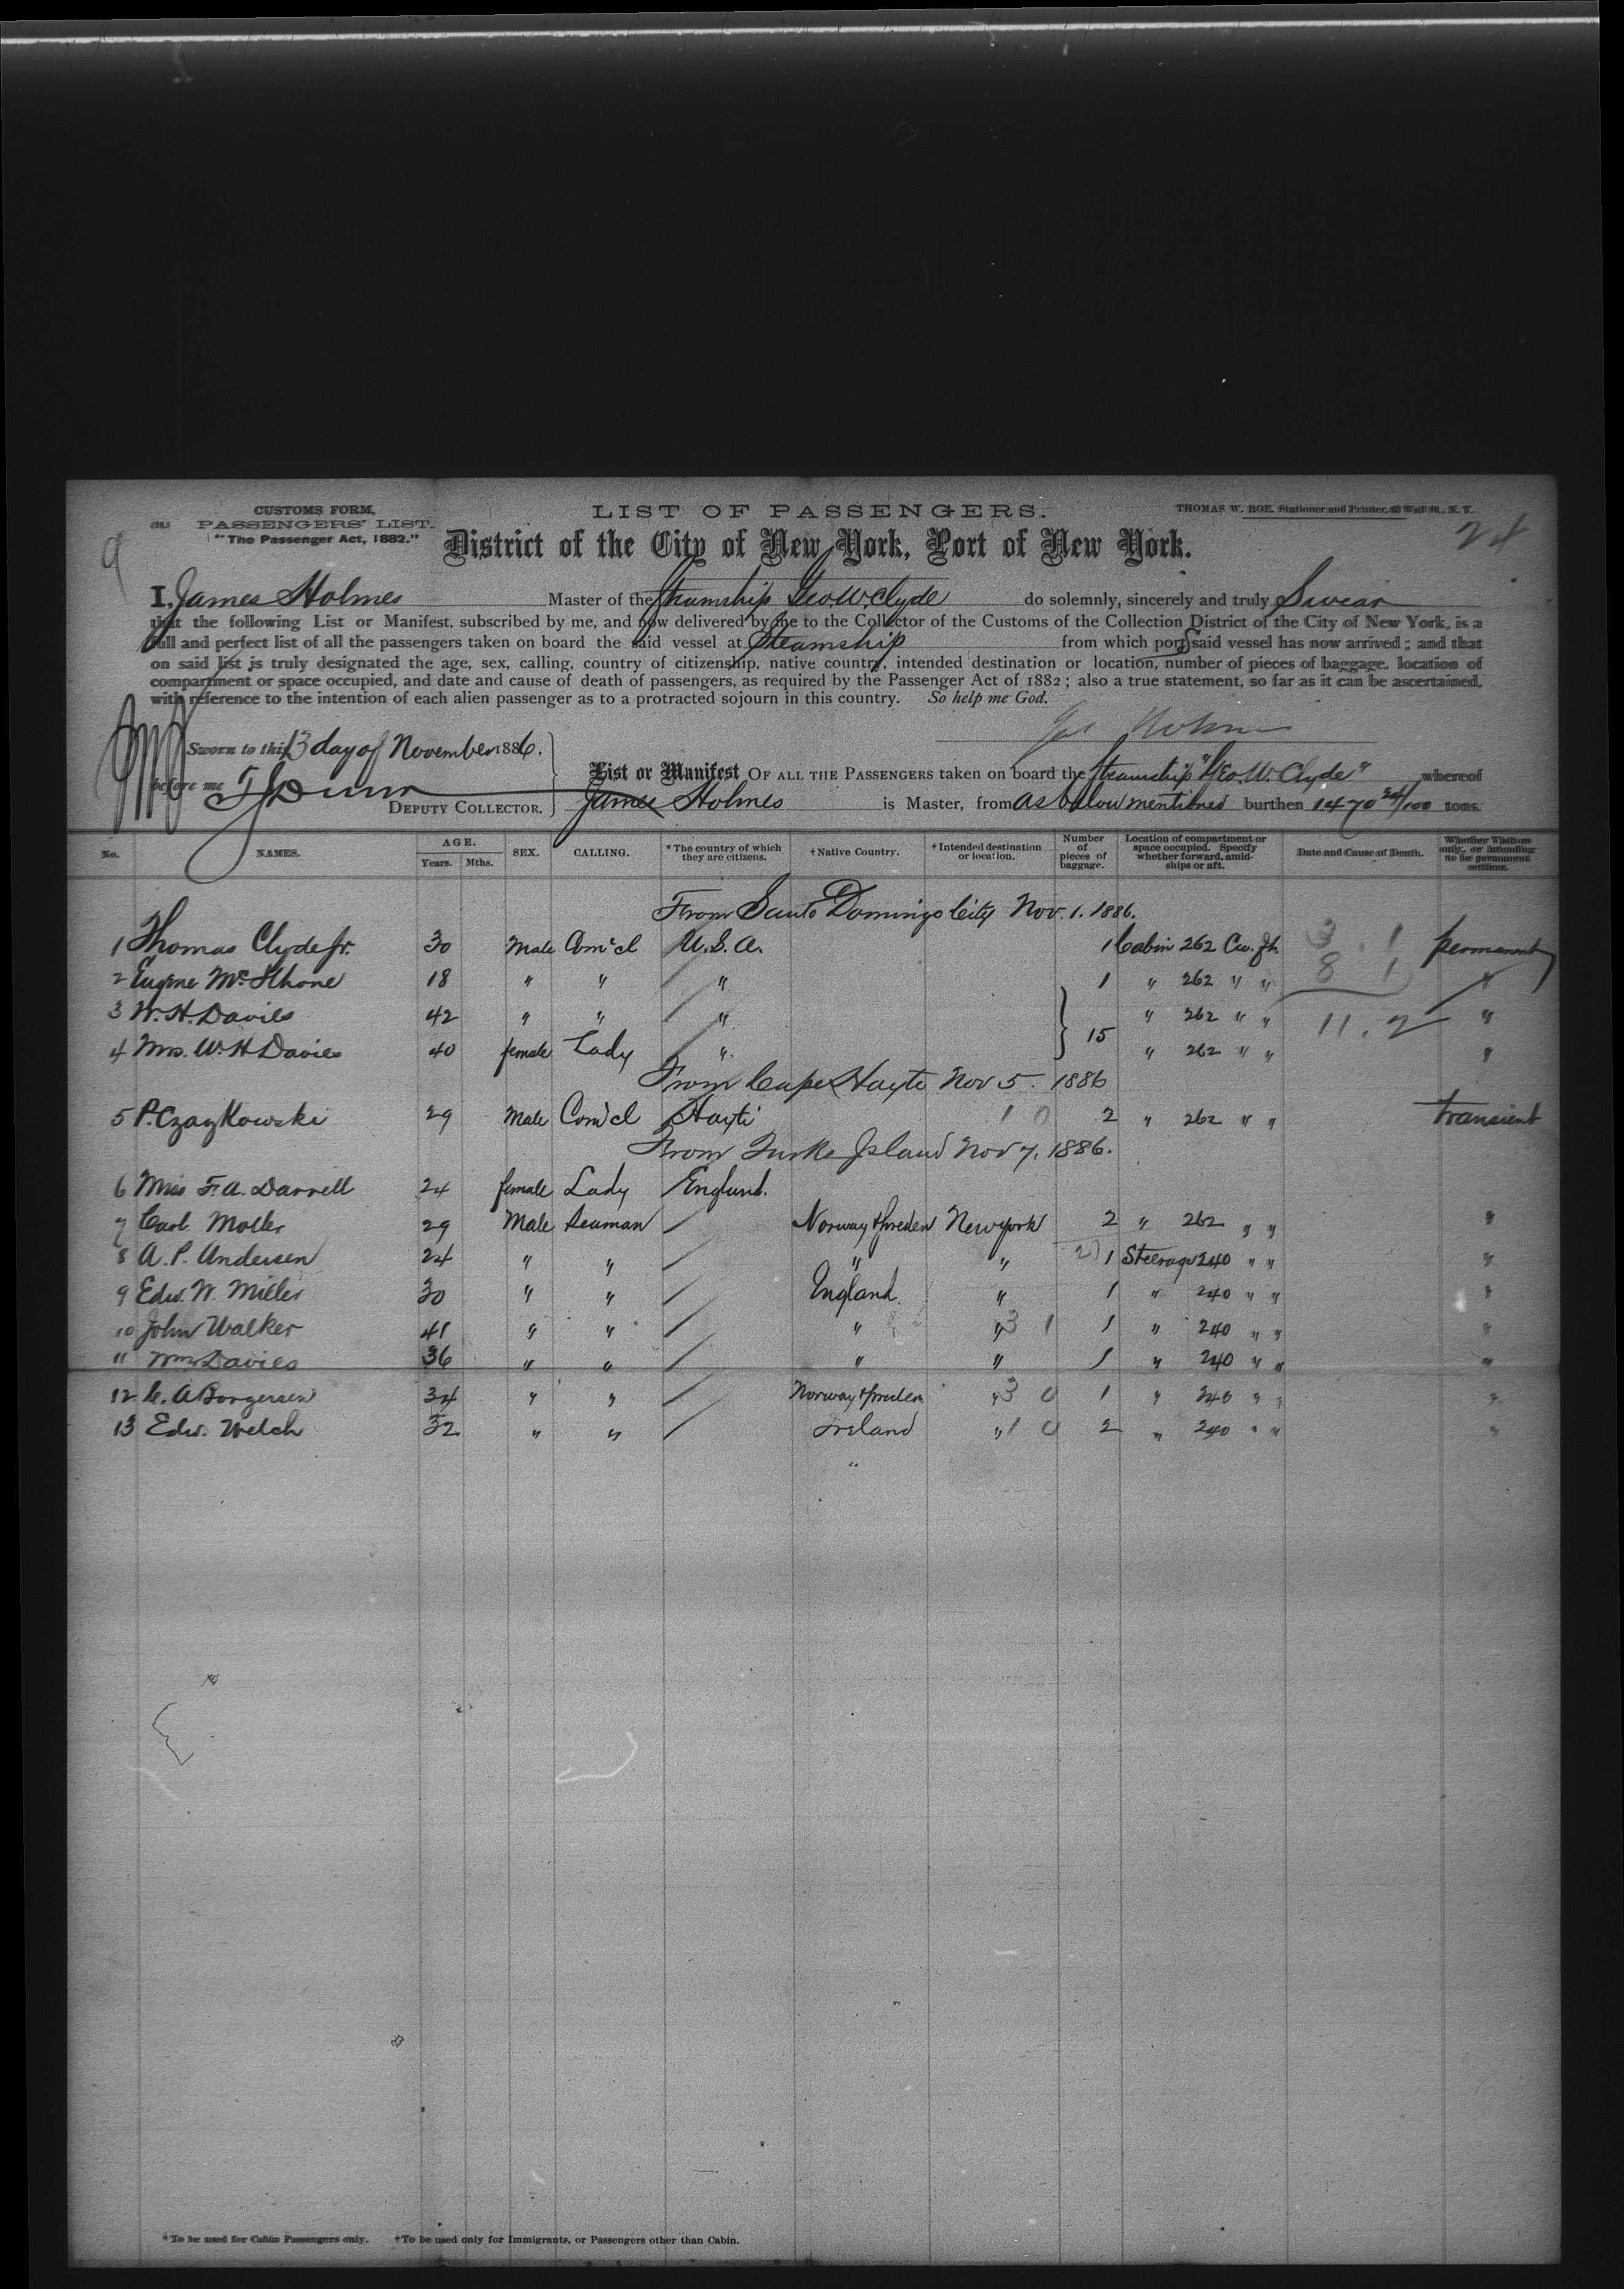 CUSTOMS FORM.
PASSENGERS' LIST.
"The Passenger Act, 1882."
LIST OF PASSENGERS.
THOMAS W. ROE, Stationer and Printer, Wall St., N. Y.
9
24
District of the City of New York, Port of New York.
I, James Holmes Master of the Steamship Geo W. Clyde do solemnly, sincerely and truly Swear
that the following List or Manifest, subscribed by me, and now delivered by me to the Collector of the Customs of the Collection District of the City of New York, is a
full and perfect list of all the passengers taken on board the said vessel at Steamship from which port said vessel has now arrived; and that
on said list is truly designated the age, sex, calling, country of citizenship, native country, intended destination or location, number of pieces of baggage, location of
compartment or space occupied, and date and cause of death of passengers, as required by the Passenger Act of 1882; also a true statement, so far as it can be ascertained,
with reference to the intention of each alien passenger as to a protracted sojourn in this country. So help me God.
Jas Holmes
Sworn to this 13 day of November 1886.
before me
DEPUTY COLLECTOR.
List or Manifest OF ALL THE PASSENGERS taken on board the Steamship "Geo. W. Clyde" whereof
James Holmes is Master, from as below mentioned burthen 1470 24/100 tons.
No. NAMES. AGE. Years. Mths. SEX. CALLING. *The country of which they are citizens. †Native Country. †Intended destination or location. Number of pieces of baggage. Location of compartment or space occupied. Specify whether forward, amidships or aft. Date and Cause of Death. Whether Visitors only, or intending to be permanent settlers.
From Santo Domingo City Nov. 1. 1886.
1 Thomas Clyde Jr. 30 Male Com'cl U.S.A. 1 Cabin 262 Cu. ft. 3 1 permanent
2 Eugene 18 " " " 1 " 262 " " 8 1 "
3 W. H. Davies 42 " " " " 262 " " 11. 2 "
4 Mrs. W. H. Davies 40 female Lady " 15 " 262 " " "
From Cape Hayti Nov 5. 1886
5 P. Czaykowski 29 Male Com'cl Hayti 1 0 2 " 262 " " transient
From Turks Island Nov 7. 1886.
6 Miss F. A. Darrell 24 female Lady England.
7 Carl Moller 29 Male Seaman Norway & Sweden New york 2 " 262 " " "
8 A. P. Andersen 24 " " " " 2 1 Steerage 240 " " "
9 Edw. W. Miller 30 " " England " 1 " 240 " " "
10 John Walker 41 " " " " 3 1 1 " 240 " " "
11 Wm Davies 36 " " " " 1 " 240 " " "
12 C. A Borgersen 34 " " Norway & Sweden " 3 0 1 " 240 " " "
13 Edw. Welch 32 " " Ireland " 1 0 2 " 240 " " "
* To be used for Cabin Passengers only. †To be used only for Immigrants, or Passengers other than Cabin.